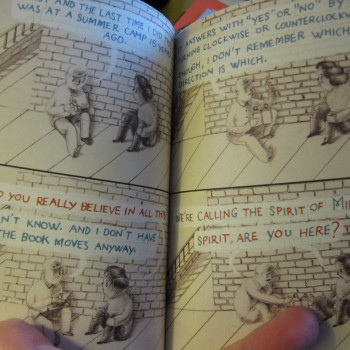 AND THE LAST TIME I DID
WAS AT A SUMMER CAMP
AGO.
ANSWERS WITH "YES" OR "NO" BY
CLOCKWISE OR COUNTERCLOCKW
THOUGH, I DON'T REMEMBER WHICH
DIRECTION IS WHICH.
YOU REALLY BELIEVE IN ALL
KNOW. AND I DON'T HAVE
THE BOOK MOVES ANYWAY.
WE'RE CALLING THE SPIRIT OF
SPIRIT, ARE YOU HERE?